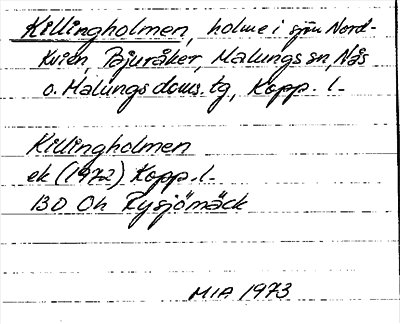 Killingholmen, holme i sjön Nord-
kvien, Bjuråker, Malungs sn, Nås
o. Malungs doms. tg, Kopp. l.
Killingholmen
ek (1972) Kopp. l.
13D Oh Rysjömäck
MIA 1973